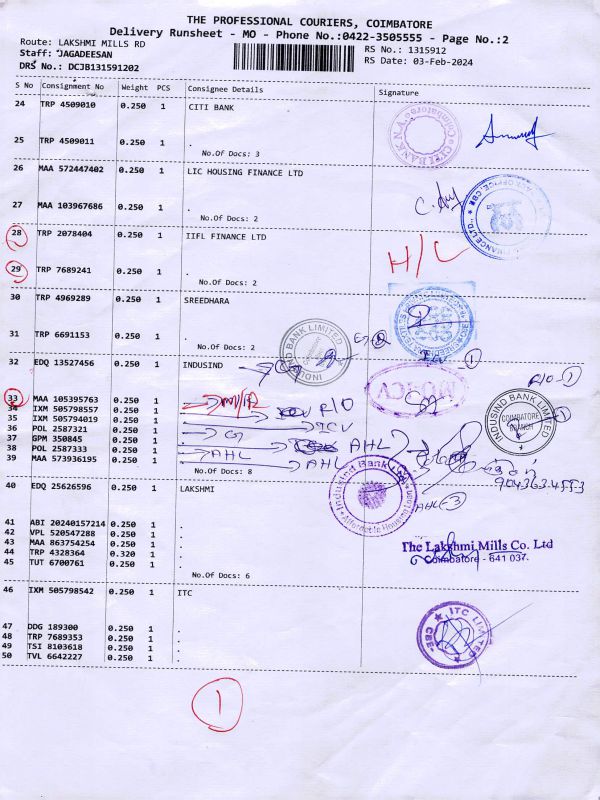 THE PROFESSIONAL COURIERS, COIMBATORE
Delivery Runsheet - MO - Phone No.:0422-3505555 - Page No.:2
Route: LAKSHMI MILLS RD
RS No.: 1315912
Staff: JAGADEESAN
RS Date: 03-Feb-2024
DRS No.: DCJB131591202
S No Consignment No Weight PCS Consignee Details Signature
24 TRP 4509010 0.250 1 CITI BANK
25 TRP 4509011 0.250 1 .
No.Of Docs: 3
26 MAA 572447402 0.250 1 LIC HOUSING FINANCE LTD
27 MAA 103967686 0.250 1 .
No.Of Docs: 2
28 TRP 2078404 0.250 1 IIFL FINANCE LTD
H/L
29 TRP 7689241 0.250 1 .
No.Of Docs: 2
30 TRP 4969289 0.250 1 SREEDHARA
31 TRP 6691153 0.250 1 .
No.Of Docs: 2
INDUSIND BANK LIMITED
32 EDQ 13527456 0.250 1 INDUSIND
R/O-1
33 MAA 105395763 0.250 1 .
34 IXM 505798557 0.250 1 . R/O
35 IXM 505794019 0.250 1 . ICV
36 POL 2587321 0.250 1 .
37 GPM 350845 0.250 1 . AHL
38 POL 2587333 0.250 1 . AHL
39 MAA 573936195 0.250 1 . AHL
No.Of Docs: 8
INDUSIND BANK LIMITED
COIMBATORE BRANCH
9043634553
IndusInd Bank Ltd
Affordable Housing
AHL-3
40 EDQ 25626596 0.250 1 LAKSHMI
41 ABI 20240157214 0.250 1 .
42 VPL 520547288 0.250 1 .
43 MAA 863754254 0.250 1 .
44 TRP 4328364 0.320 1 .
45 TUT 6700761 0.250 1 .
No.Of Docs: 6
The Lakshmi Mills Co. Ltd
Coimbatore - 641 037.
46 IXM 505798542 0.250 1 ITC
47 DDG 189300 0.250 1 .
48 TRP 7689353 0.250 1 .
49 TSI 8103618 0.250 1 .
50 TVL 6642227 0.250 1 .
ITC LIMITED
CBE
1